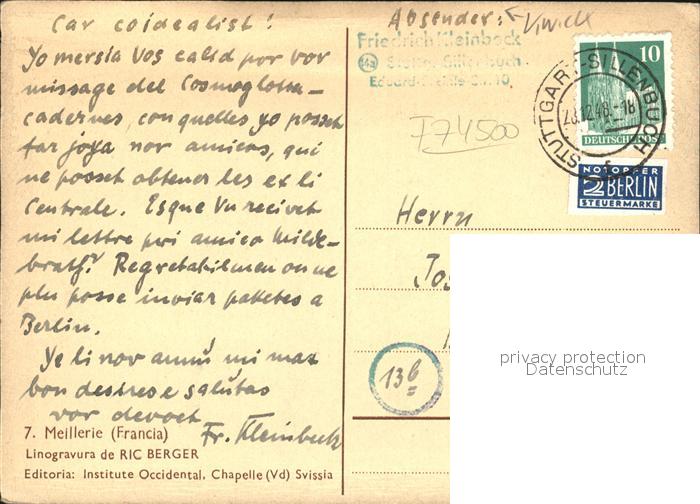 Car coidealist!
Yo mersia Vos calid por vor
missage del Cosmoglotta-
cadernes, con quelles yo posset
far joya nor amicos, qui
ne posset obtener les ex li
Centrale. Esque Vu recivet
mi lettre pri amico Milde-
brath? Regretabilmen on ne
plu posse inviar paketes a
Berlin.
Ye li nov annu mi max
bon desires e salutas
vor devoet
Fr. Kleinbeck
7. Meillerie (Francia)
Linogravura de RIC BERGER
Editoria: Institute Occidental, Chapelle (Vd) Svissia
Absender:
Friedrich Kleinbeck
(14a) Stuttg.-Sillenbuch
10
DEUTSCHE POST
STUTTGART-SILLENBUCH
NOTOPFER
2 BERLIN
STEUERMARKE
F74500
Herrn
13b
privacy protection
Datenschutz